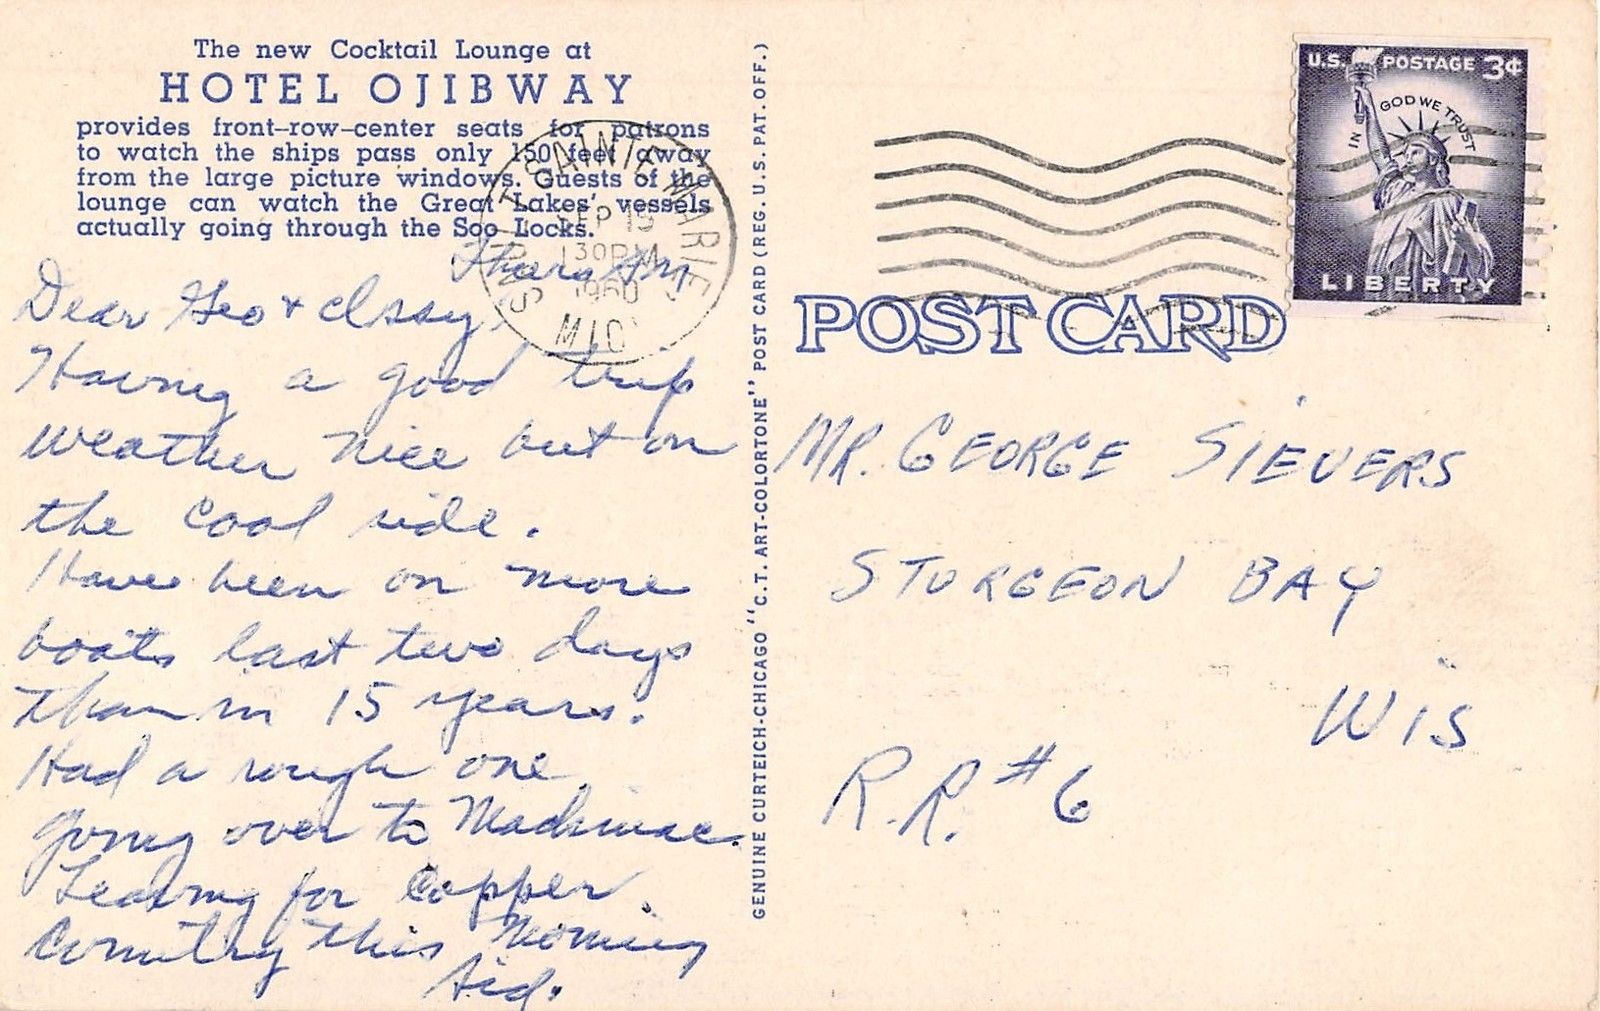 The new Cocktail Lounge at
HOTEL OJIBWAY
provides front-row-center seats for patrons
to watch the ships pass only 150 feet away
from the large picture windows. Guests of the
lounge can watch the Great Lakes' vessels
actually going through the Soo Locks.
SAULT SAINTE MARIE
SEP 15
130 PM
1960
MICH
Thurs AM
Dear Geo +
Having a good trip
weather nice but on
the cool side.
Have been on more
boats last two days
than in 15 years.
Had a rough one
going over to Mackinac.
Leaving for Copper
Country this morning
Sid.
GENUINE CURTEICH-CHICAGO "C.T. ART-COLORTONE" POST CARD (REG. U.S. PAT. OFF.)
U.S. POSTAGE 3¢
IN GOD WE TRUST
LIBERTY
POST CARD
MR. GEORGE SIEVERS
STURGEON BAY
WIS
R.R. #6